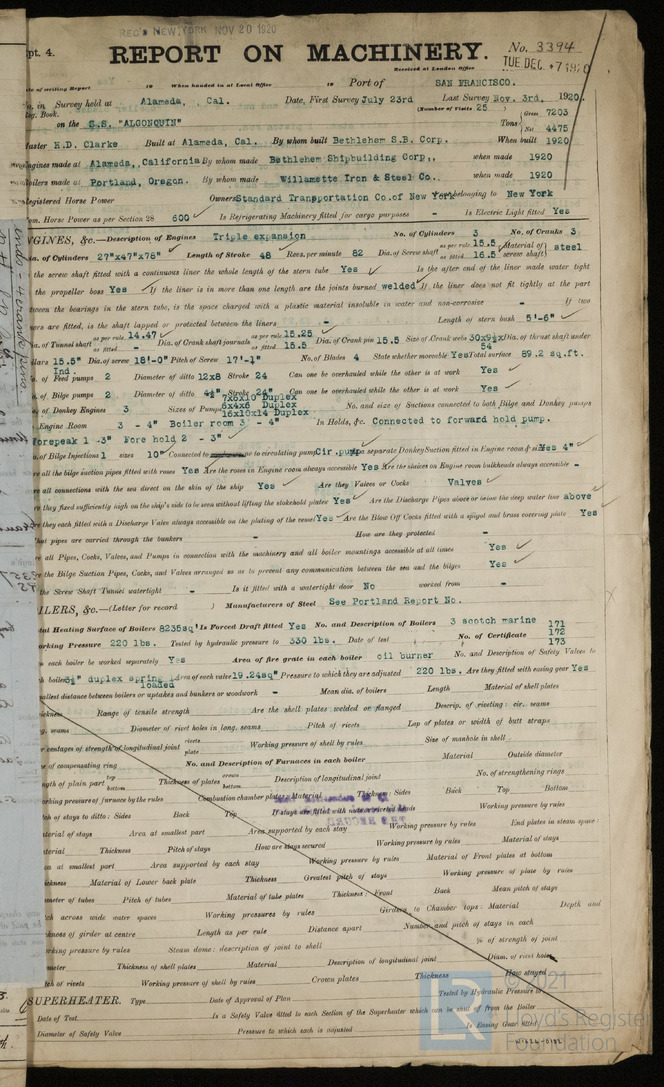 REC'D NEW YORK NOV 20 1920
pt. 4.
REPORT ON MACHINERY.
No. 3394
Received at London Office TUE. DEC. 7 1920
te of writing Report 19 When handed in at Local Office 19 Port of SAN FRANCISCO.
in Survey held at Alameda, Cal. Date, First Survey July 23rd Last Survey Nov. 3rd, 1920.
g. Book. (Number of Visits 25 )
on the S.S. "ALGONQUIN" Tons Gross 7203 Net 4475
aster H.D. Clarke Built at Alameda, Cal. By whom built Bethlehem S.B. Corp. When built 1920
ngines made at Alameda, California By whom made Bethlehem Shipbuilding Corp., when made 1920
oilers made at Portland, Oregon. By whom made Willamette Iron & Steel Co. when made 1920
egistered Horse Power Owners Standard Transportation Co. of New York Port belonging to New York
om. Horse Power as per Section 28 600 Is Refrigerating Machinery fitted for cargo purposes - Is Electric Light fitted Yes
NGINES, &c.—Description of Engines Triple expansion No. of Cylinders 3 No. of Cranks 3
a. of Cylinders 27"x47"x78" Length of Stroke 48 Revs. per minute 82 Dia. of Screw shaft as per rule 15.5 as fitted 16.5 Material of screw shaft steel
the screw shaft fitted with a continuous liner the whole length of the stern tube Yes Is the after end of the liner made water tight
the propeller boss Yes If the liner is in more than one length are the joints burned welded If the liner does not fit tightly at the part
tween the bearings in the stern tube, is the space charged with a plastic material insoluble in water and non-corrosive - If two
ers are fitted, is the shaft lapped or protected between the liners - Length of stern bush 5'-6"
. of Tunnel shaft as per rule 14.47 as fitted - Dia. of Crank shaft journals as per rule 15.25 as fitted 15.5 Dia. of Crank pin 15.5 Size of Crank webs 30x9½x54" Dia. of thrust shaft under
lars 15.5" Dia. of screw 18'-0" Pitch of Screw 17'-1" No. of Blades 4 State whether moveable Yes Total surface 89.2 sq.ft.
Ind.
. of Feed pumps 2 Diameter of ditto 12x8 Stroke 24 Can one be overhauled while the other is at work Yes
. of Bilge pumps 2 Diameter of ditto 4½" Stroke 24" Can one be overhauled while the other is at work Yes
. of Donkey Engines 3 Sizes of Pumps 7x6x10 Duplex 6x4x6 Duplex 16x10x14 Duplex No. and size of Suctions connected to both Bilge and Donkey pumps
Engine Room 3 - 4" Boiler room 3 - 4" In Holds, &c. Connected to forward hold pump.
Forespeak 1 -3" Fore hold 2 - 3"
. of Bilge Injections 1 sizes 10" Connected to or to circulating pump Cir. pump Is a separate Donkey Suction fitted in Engine room & size Yes 4"
re all the bilge suction pipes fitted with roses Yes Are the roses in Engine room always accessible Yes Are the sluices on Engine room bulkheads always accessible -
re all connections with the sea direct on the skin of the ship Yes Are they Valves or Cocks Valves
re they fixed sufficiently high on the ship's side to be seen without lifting the stokehold plates Yes Are the Discharge Pipes above or below the deep water line above
re they each fitted with a Discharge Valve always accessible on the plating of the vessel Yes Are the Blow Off Cocks fitted with a spigot and brass covering plate Yes
hat pipes are carried through the bunkers - How are they protected -
re all Pipes, Cocks, Valves, and Pumps in connection with the machinery and all boiler mountings accessible at all times Yes
re the Bilge Suction Pipes, Cocks, and Valves arranged so as to prevent any communication between the sea and the bilges Yes
the Screw Shaft Tunnel watertight - Is it fitted with a watertight door No worked from -
ILERS, &c.—(Letter for record ) Manufacturers of Steel See Portland Report No.
tal Heating Surface of Boilers 8235sq' Is Forced Draft fitted Yes No. and Description of Boilers 3 scotch marine 171
orking Pressure 220 lbs. Tested by hydraulic pressure to 330 lbs. Date of test No. of Certificate 172
173
n each boiler be worked separately Yes Area of fire grate in each boiler oil burner No. and Description of Safety Valves to
h boiler 3½" duplex spring loaded Area of each valve 19.24sq" Pressure to which they are adjusted 220 lbs. Are they fitted with easing gear Yes
mallest distance between boilers or uptakes and bunkers or woodwork - Mean dia. of boilers Length Material of shell plates
ickness Range of tensile strength Are the shell plates welded or flanged Descrip. of riveting: cir. seams
g. seams Diameter of rivet holes in long. seams Pitch of rivets Lap of plates or width of butt straps
er centages of strength of longitudinal joint rivets plate Working pressure of shell by rules Size of manhole in shell
e of compensating ring No. and Description of Furnaces in each boiler Material Outside diameter
ngth of plain part top bottom Thickness of plates crown bottom Description of longitudinal joint No. of strengthening rings
orking pressure of furnace by the rules Combustion chamber plates: Material Thickness: Sides Back Top Bottom
tch of stays to ditto: Sides Back Top If stays are fitted with nuts or riveted heads Working pressure by rules
aterial of stays Area at smallest part Area supported by each stay Working pressure by rules End plates in steam space:
aterial Thickness Pitch of stays How are stays secured Working pressure by rules Material of stays
ea at smallest part Area supported by each stay Working pressure by rules Material of Front plates at bottom
ickness Material of Lower back plate Thickness Greatest pitch of stays Working pressure of plate by rules
ameter of tubes Pitch of tubes Material of tube plates Thickness: Front Back Mean pitch of stays
ch across wide water spaces Working pressures by rules Girders to Chamber tops: Material Depth and
ickness of girder at centre Length as per rule Distance apart Number and pitch of stays in each
orking pressure by rules Steam dome: description of joint to shell % of strength of joint
ameter Thickness of shell plates Material Description of longitudinal joint Diam. of rivet holes
tch of rivets Working pressure of shell by rules Crown plates Thickness How stayed
SUPERHEATER. Type Date of Approval of Plan Tested by Hydraulic Pressure to
Date of Test Is a Safety Valve fitted to each Section of the Superheater which can be shut off from the Boiler
Diameter of Safety Valve Pressure to which each is adjusted Is Easing Gear fitted
© 2021
Lloyd's Register
Foundation